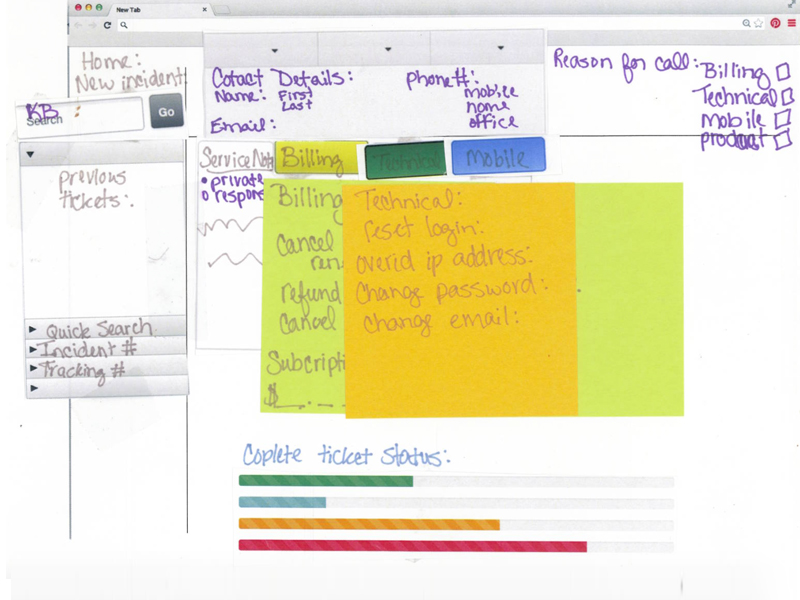 New Tab
Home:
New incident!
KB :
Search
Go
Cotact Details:
Name: First
Last
Email:
phone#:
mobile
home
office
Reason for call:
Billing
Technical
mobile
product
previous
tickets:
Quick Search
Incident #
Tracking #
Service Not
• private
o respon
Billing
Technical
Mobile
Billing
Cancel
refund
Cancel
Subcripti
$
Technical:
reset login:
overid ip address:
Change password:
Change email:
Coplete ticket status: